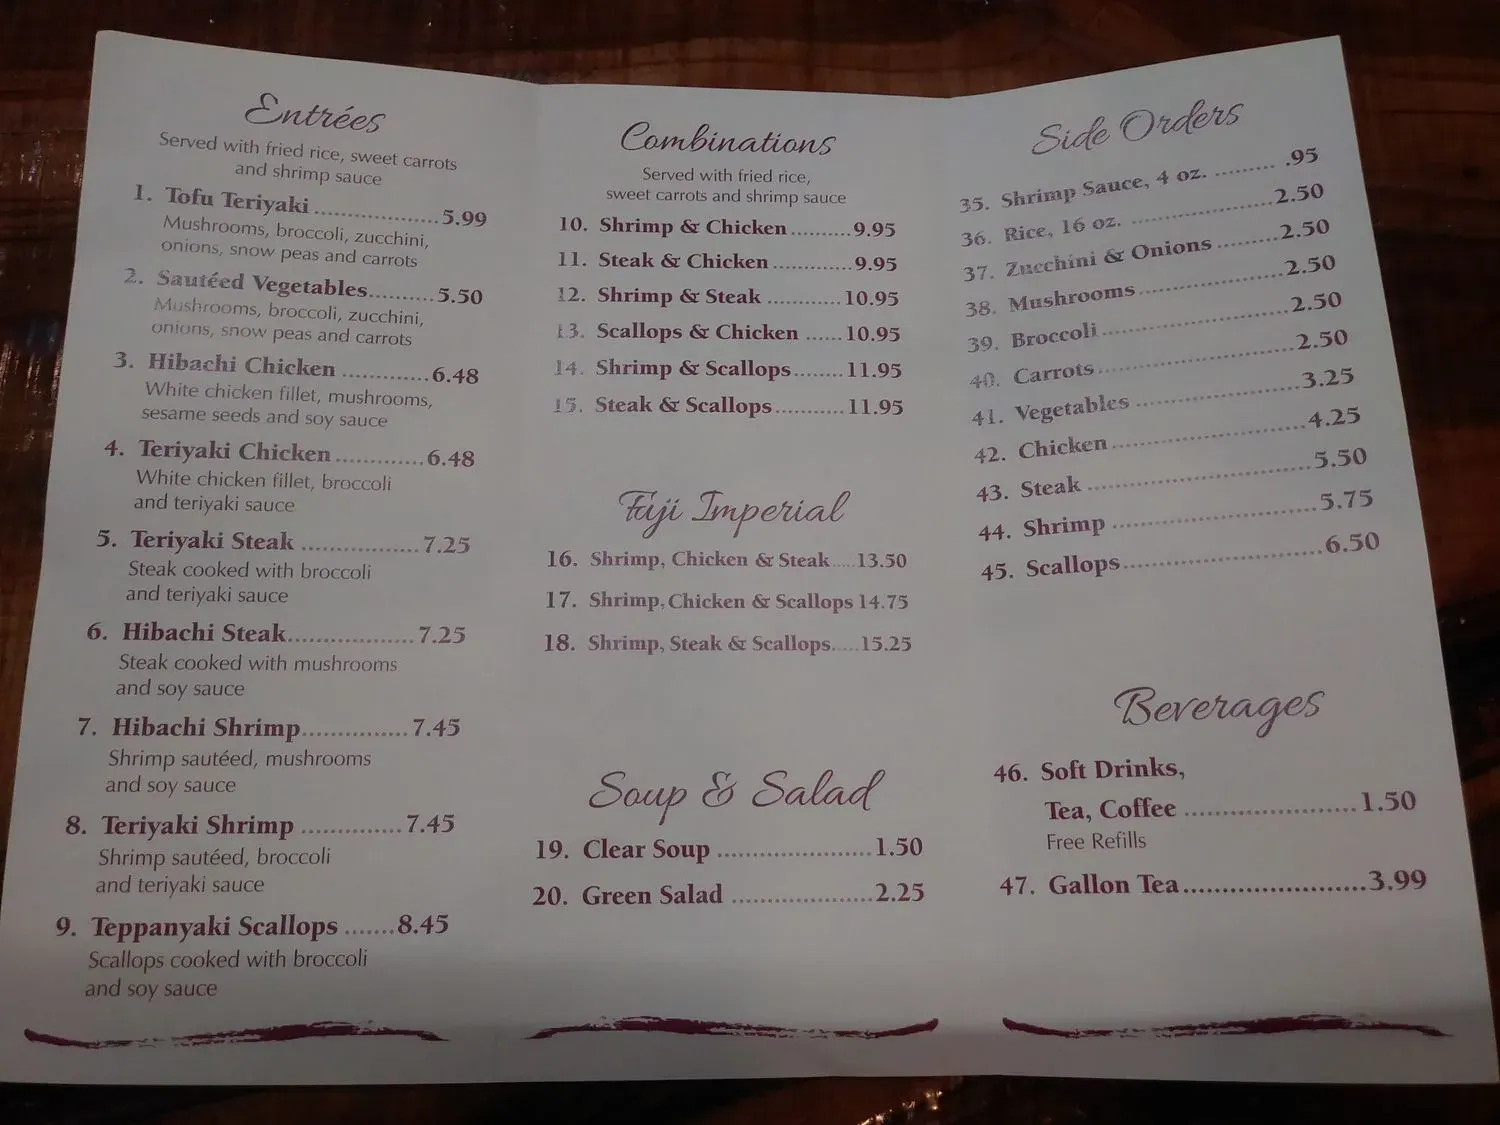 Entrées
Served with fried rice, sweet carrots
and shrimp sauce
1. Tofu Teriyaki ..................5.99
Mushrooms, broccoli, zucchini,
onions, snow peas and carrots
2. Sautéed Vegetables..........5.50
Mushrooms, broccoli, zucchini,
onions, snow peas and carrots
3. Hibachi Chicken ............6.48
White chicken fillet, mushrooms,
sesame seeds and soy sauce
4. Teriyaki Chicken ............6.48
White chicken fillet, broccoli
and teriyaki sauce
5. Teriyaki Steak ................7.25
Steak cooked with broccoli
and teriyaki sauce
6. Hibachi Steak.................7.25
Steak cooked with mushrooms
and soy sauce
7. Hibachi Shrimp...............7.45
Shrimp sautéed, mushrooms
and soy sauce
8. Teriyaki Shrimp ..............7.45
Shrimp sautéed, broccoli
and teriyaki sauce
9. Teppanyaki Scallops .......8.45
Scallops cooked with broccoli
and soy sauce
Combinations
Served with fried rice,
sweet carrots and shrimp sauce
10. Shrimp & Chicken..........9.95
11. Steak & Chicken.............9.95
12. Shrimp & Steak ............10.95
13. Scallops & Chicken ......10.95
14. Shrimp & Scallops.........11.95
15. Steak & Scallops...........11.95
Fuji Imperial
16. Shrimp, Chicken & Steak....13.50
17. Shrimp, Chicken & Scallops 14.75
18. Shrimp, Steak & Scallops.....15.25
Soup & Salad
19. Clear Soup ......................1.50
20. Green Salad ....................2.25
Side Orders
35. Shrimp Sauce, 4 oz. ......... .95
36. Rice, 16 oz. .....................2.50
37. Zucchini & Onions .........2.50
38. Mushrooms.....................2.50
39. Broccoli...........................2.50
40. Carrots............................2.50
41. Vegetables .......................3.25
42. Chicken ...........................4.25
43. Steak ...............................5.50
44. Shrimp .............................5.75
45. Scallops............................6.50
Beverages
46. Soft Drinks,
Tea, Coffee ......................1.50
Free Refills
47. Gallon Tea.......................3.99